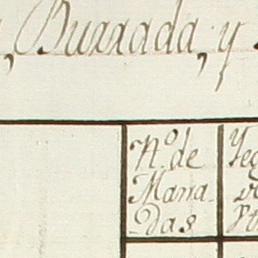 , Burrada, y
N.º de
Mana-
das